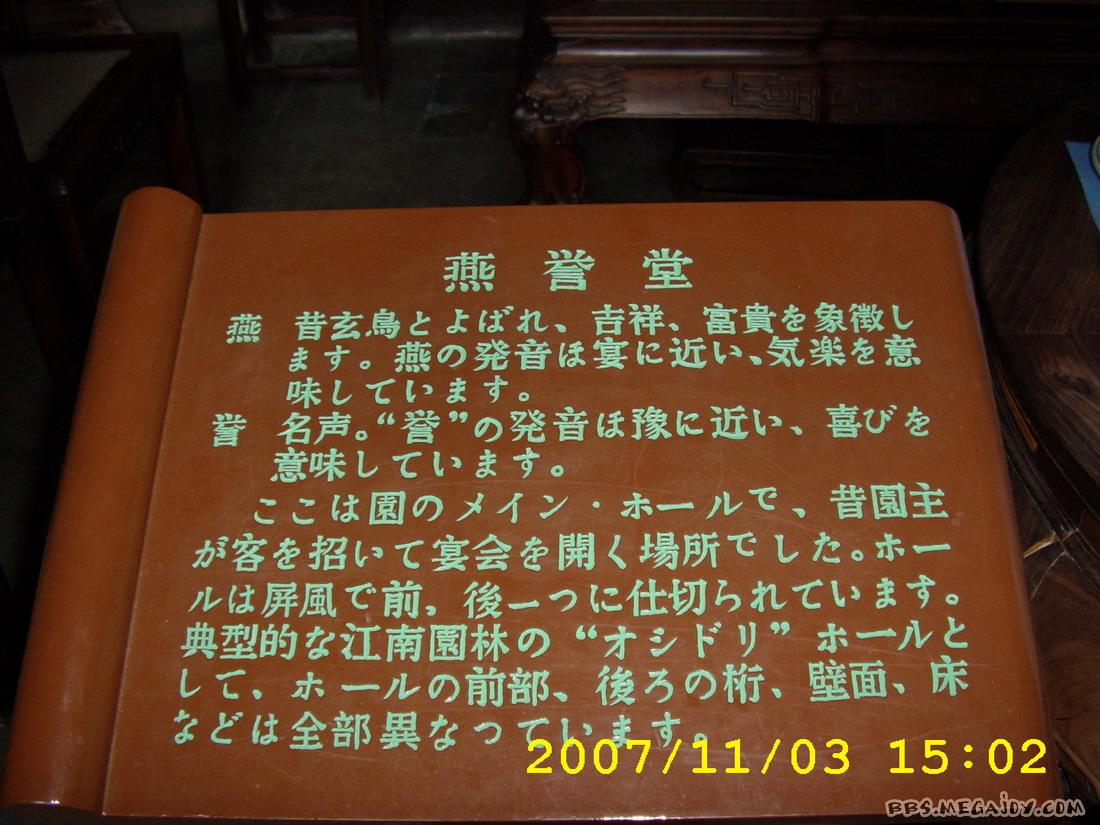 燕誉堂
燕 昔玄鳥とよばれ、吉祥、富貴を象徴し
ます。燕の発音ほ宴に近い、気楽を意
味しています。
誉 名声。“誉”の発音ほ豫に近い、喜びを
意味しています。
ここは園のメイン・ホールで、昔園主
が客を招いて宴会を開く場所でした。ホー
ルは屏風で前、後一つに仕切られています。
典型的な江南園林の“オシドリ”ホールと
して、ホールの前部、後ろの桁、壁面、床
などは全部異なっています。
2007/11/03 15:02
BBS.MEGAJOY.COM